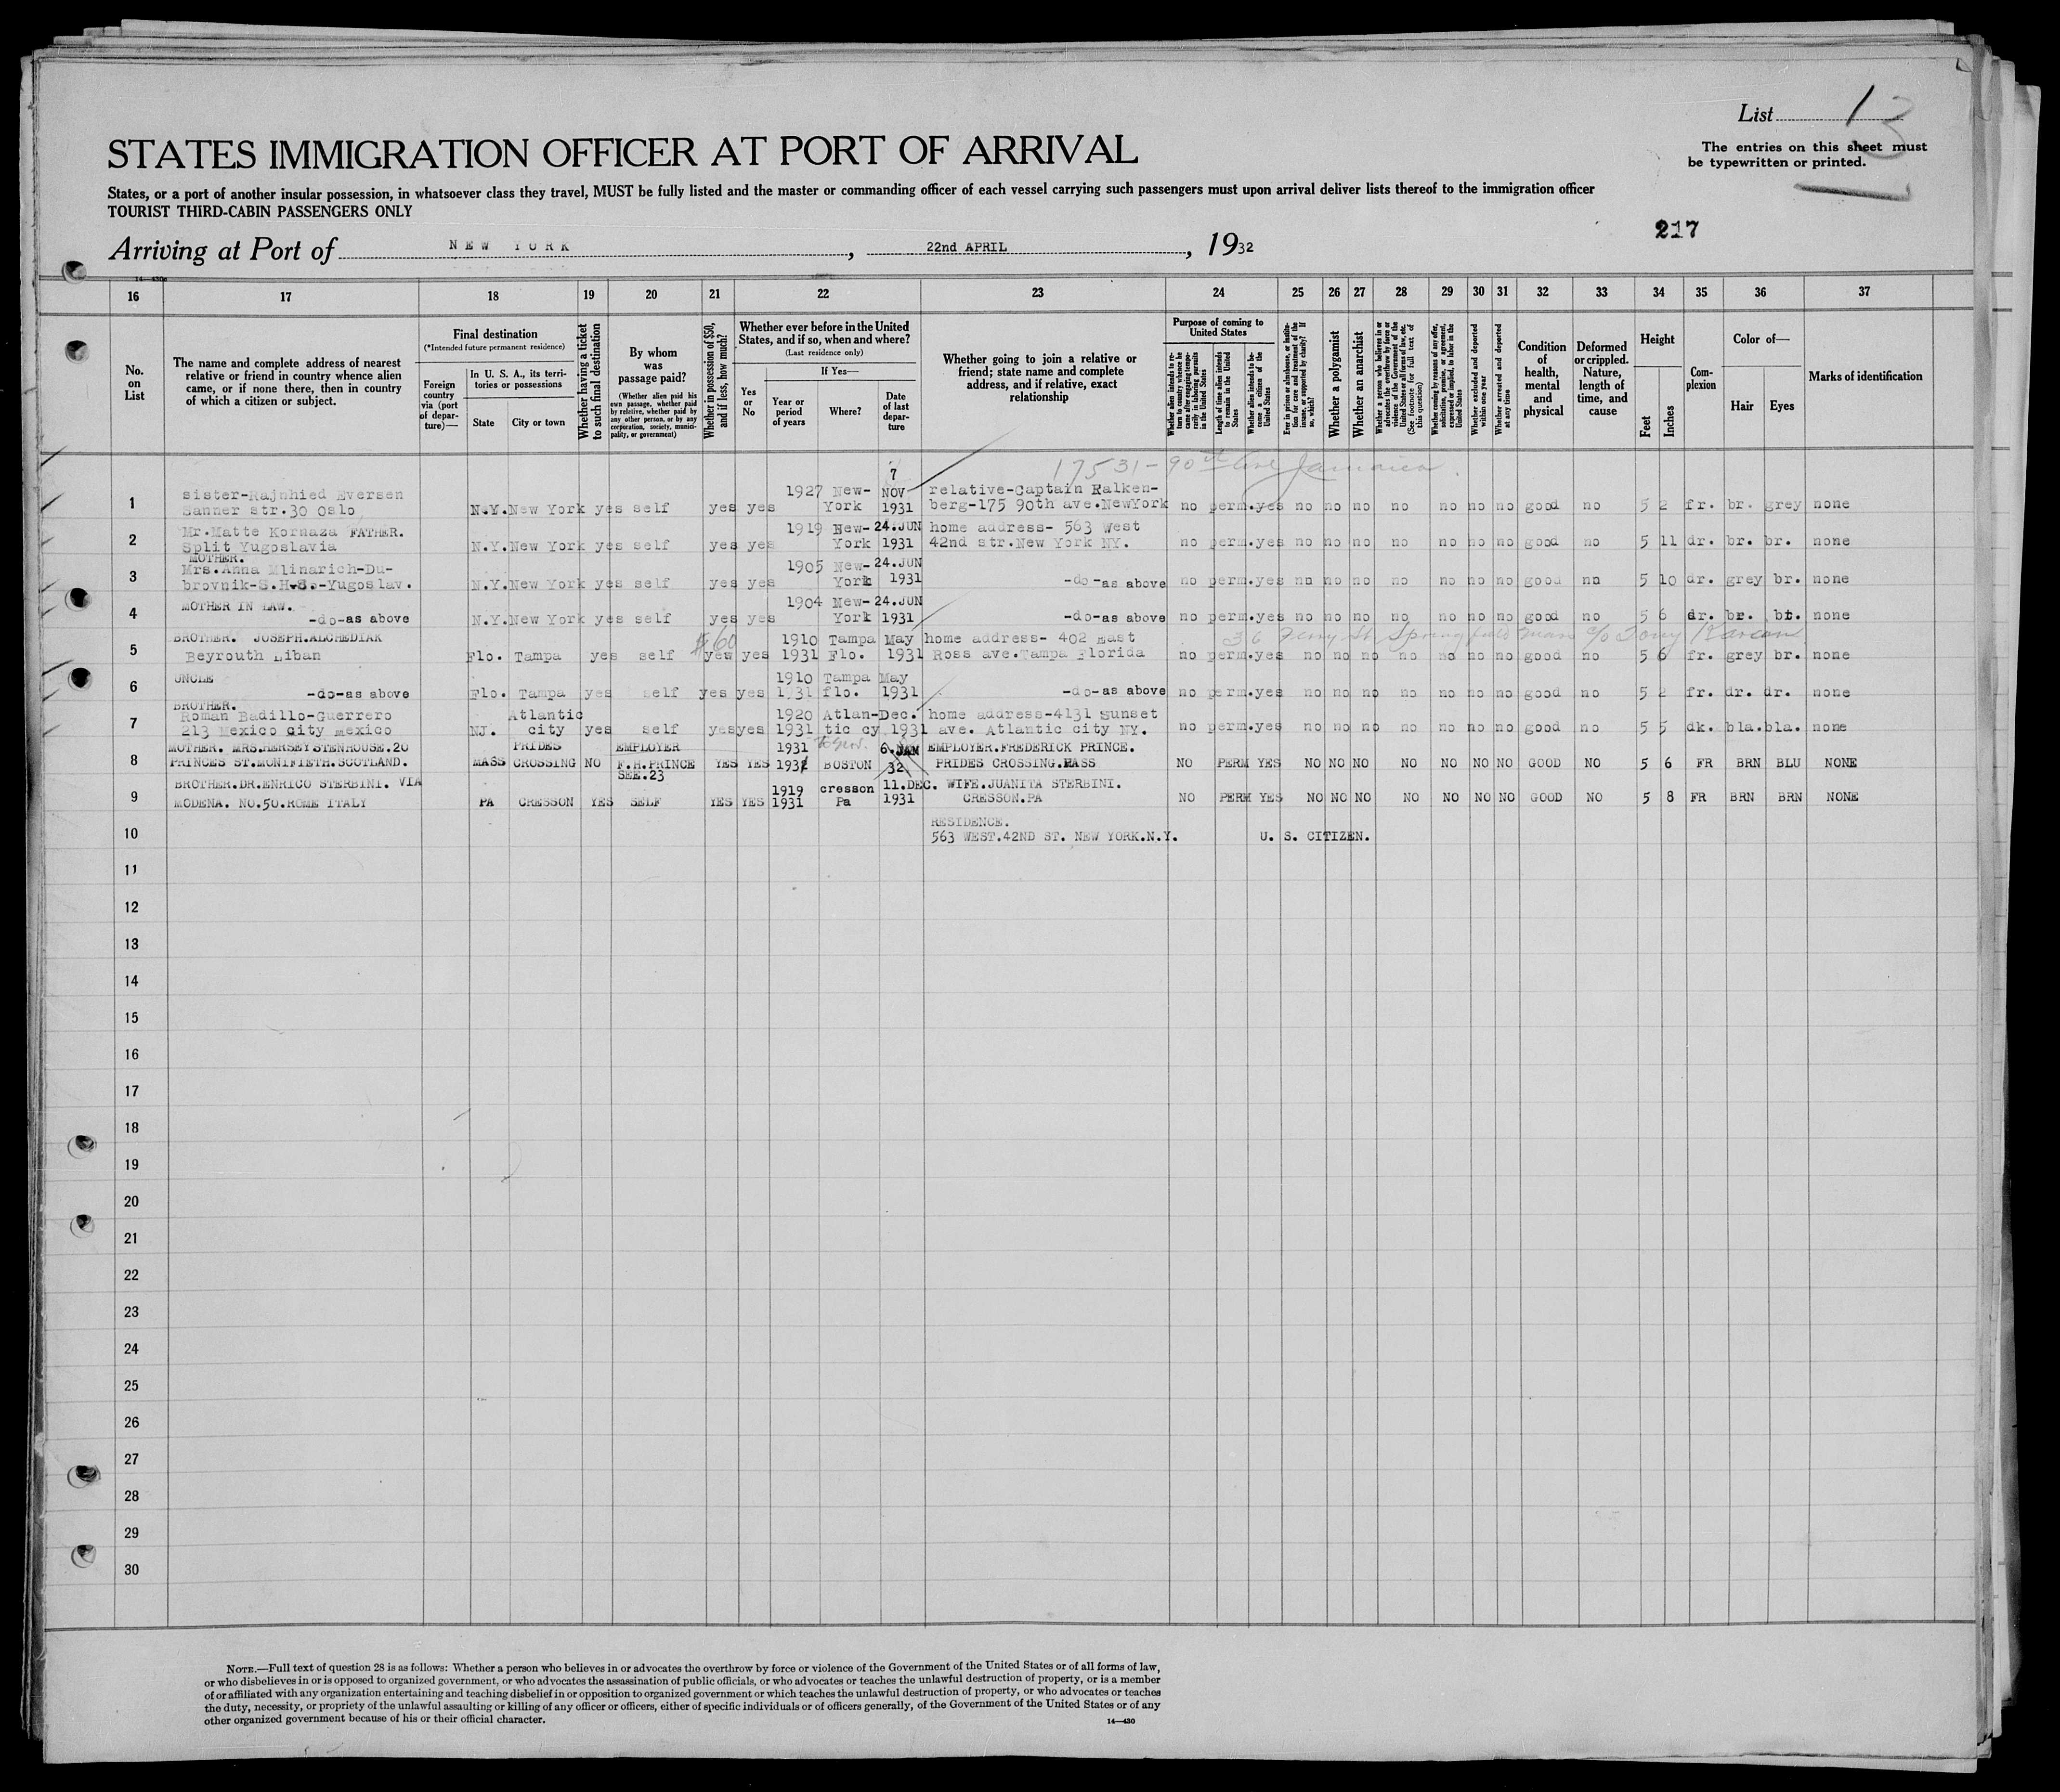 List 13
The entries on this sheet must
be typewritten or printed.
STATES IMMIGRATION OFFICER AT PORT OF ARRIVAL
States, or a port of another insular possession, in whatsoever class they travel, MUST be fully listed and the master or commanding officer of each vessel carrying such passengers must upon arrival deliver lists thereof to the immigration officer
TOURIST THIRD-CABIN PASSENGERS ONLY
217
Arriving at Port of NEW YORK, 22nd APRIL, 1932
14-430
16 17 18 19 20 21 22 23 24 25 26 27 28 29 30 31 32 33 34 35 36 37
No. on List
The name and complete address of nearest relative or friend in country whence alien came, or if none there, then in country of which a citizen or subject.
Final destination
(*Intended future permanent residence)
Foreign country via (port of departure)—
In U. S. A., its territories or possessions
State
City or town
Whether having a ticket to such final destination
By whom was passage paid?
(Whether alien paid his own passage, whether paid by relative, whether paid by any other person, or by any corporation, society, municipality, or government)
Whether in possession of $50, and if less, how much?
Whether ever before in the United States, and if so, when and where?
(Last residence only)
Yes or No
If Yes—
Year or period of years
Where?
Date of last departure
Whether going to join a relative or friend; state name and complete address, and if relative, exact relationship
Purpose of coming to United States
Whether alien intends to return to country whence he came after engaging temporarily in laboring pursuits in the United States
Length of time alien intends to remain in the United States
Whether alien intends to become a citizen of the United States
Ever in prison or almshouse, or institution for care and treatment of the insane, or supported by charity? If so, which?
Whether a polygamist
Whether an anarchist
Whether a person who believes in or advocates the overthrow by force or violence of the Government of the United States or all forms of law, etc. (See footnote for full text of this question)
Whether coming by reason of any offer, solicitation, promise, or agreement, expressed or implied, to labor in the United States
Whether excluded and deported within one year
Whether arrested and deported at any time
Condition of health, mental and physical
Deformed or crippled. Nature, length of time, and cause
Height
Feet
Inches
Complexion
Color of—
Hair
Eyes
Marks of identification
17531-90th Ave Jamaica
7
sister-Rajnhied Eversen 1927 New- NOV relative-Captain Falken-
1 Sanner str.30 Oslo N.Y. New York yes self yes yes York 1931 berg-175 90th ave.NewYork no perm. yes no no no no no no no good no 5 2 fr. br. grey none
Mr.Matte Kornaza FATHER. 1919 New- 24.JUN home address- 563 West
2 Split Yugoslavia N.Y. New York yes self yes yes York 1931 42nd str.New York NY. no perm. yes no no no no no no no good no 5 11 dr. br. br. none
MOTHER.
Mrs.Anna Mlinarich-Du- 1905 New- 24.JUN
3 brovnik-S.H.S.-Yugoslav. N.Y. New York yes self yes yes York 1931 -do-as above no perm. yes no no no no no no no good no 5 10 dr. grey br. none
MOTHER IN LAW. 1904 New- 24.JUN
4 -do-as above N.Y. New York yes self yes yes York 1931 -do-as above no perm. yes no no no no no no no good no 5 6 dr. br. bt. none
BROTHER. JOSEPH.ALCHEDIAK $60 1910 Tampa May home address- 402 East 36 Ferry St Springfield Mass c/o Tony
5 Beyrouth Liban Flo. Tampa yes self yew yes 1931 Flo. 1931 Ross ave.Tampa Florida no perm. yes no no no no no no no good no 5 6 fr. grey br. none
UNCLE 1910 Tampa May
6 -do-as above Flo. Tampa yes self yes yes 1931 flo. 1931 -do-as above no perm. yes no no no no no no no good no 5 2 fr. dr. dr. none
BROTHER.
Roman Badillo-Guerrero Atlantic 1920 Atlan- Dec. home address-4131 Sunset
7 213 Mexico city Mexico NJ. city yes self yes yes 1931 tic cy 1931 ave. Atlantic city NY. no perm. yes no no no no no no no good no 5 5 dk. bla. bla. none
MOTHER. MRS.HERSEY STENHOUSE.20 PRIDES EMPLOYER 1931 6.JAN EMPLOYER.FREDERICK PRINCE.
8 PRINCES ST.MONIFIETH.SCOTLAND. MASS CROSSING NO F.H.PRINCE YES YES 1932 BOSTON 32 PRIDES CROSSING.MASS NO PERM YES NO NO NO NO NO NO NO GOOD NO 5 6 FR BRN BLU NONE
SEE.23
BROTHER.DR.ENRICO STERBINI. VIA 1919 cresson 11.DEC. WIFE.JUANITA STERBINI.
9 MODENA. NO.50.ROME ITALY PA CRESSON YES SELF YES YES 1931 Pa 1931 CRESSON.PA NO PERM YES NO NO NO NO NO NO NO GOOD NO 5 8 FR BRN BRN NONE
RESIDENCE.
10 563 WEST.42ND ST. NEW YORK.N.Y. U. S. CITIZEN.
11
12
13
14
15
16
17
18
19
20
21
22
23
24
25
26
27
28
29
30
NOTE.—Full text of question 28 is as follows: Whether a person who believes in or advocates the overthrow by force or violence of the Government of the United States or of all forms of law,
or who disbelieves in or is opposed to organized government, or who advocates the assassination of public officials, or who advocates or teaches the unlawful destruction of property, or is a member
of or affiliated with any organization entertaining and teaching disbelief in or opposition to organized government or which teaches the unlawful destruction of property, or who advocates or teaches
the duty, necessity, or propriety of the unlawful assaulting or killing of any officer or officers, either of specific individuals or of officers generally, of the Government of the United States or of any
other organized government because of his or their official character.
14-430